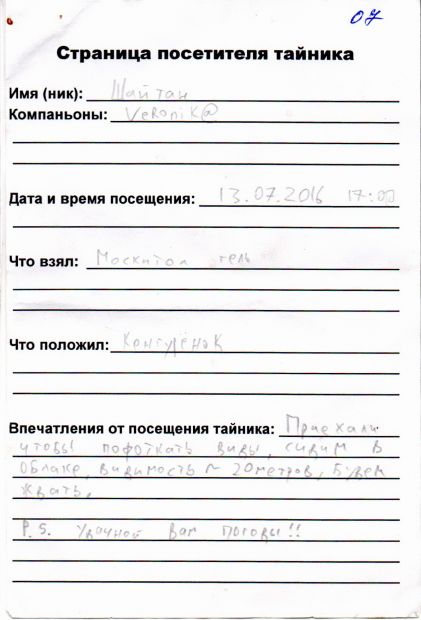 07
Страница посетителя тайника
Имя (ник): Шайтан
Компаньоны: VeRoniK@
Дата и время посещения: 13.07.2016 17:00
Что взял: Москитол гель
Что положил: Кенгурёнок
Впечатления от посещения тайника: Приехали
чтобы пофоткать виды, сидим в
облаке, видимость ~ 20 метров, будем
ждать.
P.S. Удачной вам погоды!!